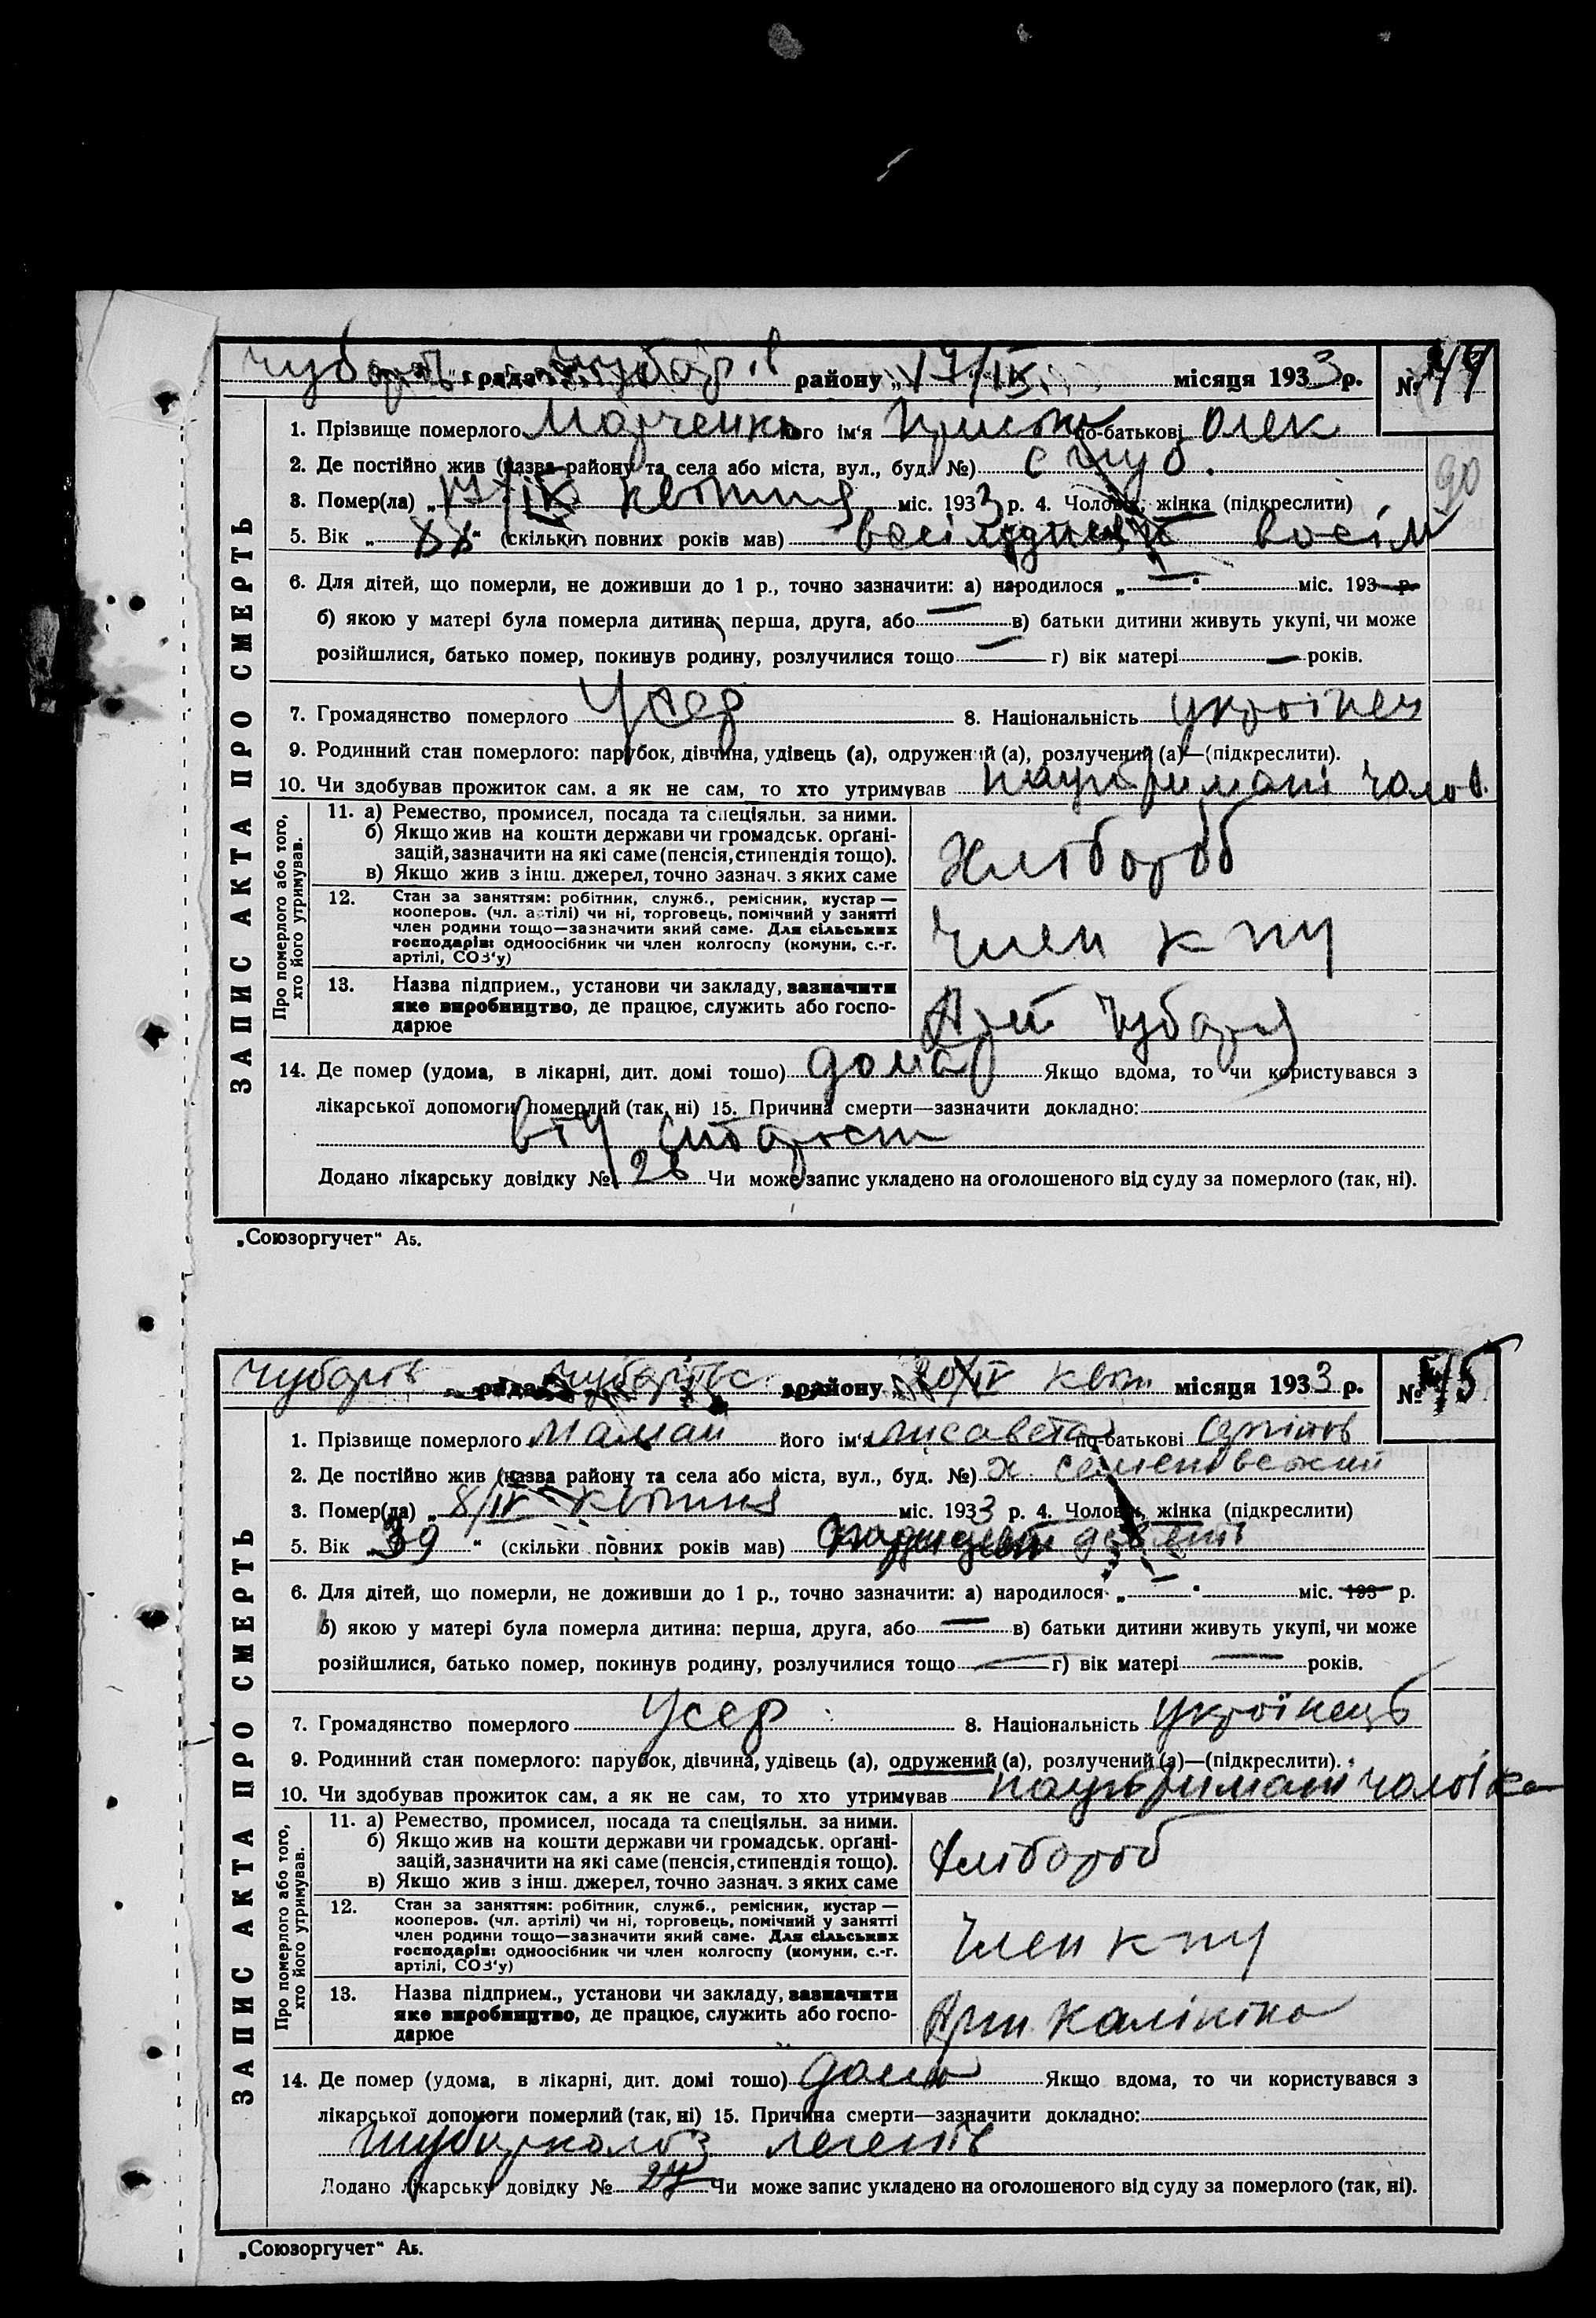 Чубарів рада Чубарів району „17/IV місяця 1933 р. № 44
1. Прізвище померлого Марченко його ім‘я по-батькові Олек
2. Де постійно жив (назва району та села або міста, вул., буд. №) с Чуб.
3. Помер(ла) „17/IV квітня міс. 1933 р. 4. Чоловік, жінка (підкреслити)
5. Вік „88“ (скільки повних років мав) вісімдесят восім
90
6. Для дітей, що померли, не доживши до 1 р., точно зазначити: а) народилося „—“ міс. 193 р.
б) якою у матері була померла дитина: перша, друга, або — в) батьки дитини живуть укупі, чи може
розійшлися, батько помер, покинув родину, розлучилися тощо — г) вік матері — років.
7. Громадянство померлого Усер 8. Національність українец
9. Родинний стан померлого: парубок, дівчина, удівець (а), одружений (а), розлучений (а)—(підкреслити).
10. Чи здобував прожиток сам, а як не сам, то хто утримував наутримані чолов.
11. а) Ремество, промисел, посада та спеціяльн. за ними.
б) Якщо жив на кошти держави чи громадськ. орґані-
зацій, зазначити на які саме (пенсія, стипендія тощо).
в) Якщо жив з інш. джерел, точно зазнач. з яких саме
Хлібороб
12. Стан за заняттям: робітник, служб., ремісник, кустар —
кооперов. (чл. артілі) чи ні, торговець, помічний у занятті
член родини тощо—зазначити який саме. Для сільських
господарів: одноосібник чи член колгоспу (комуни, с.-г.
артілі, СОЗ‘у)
Член к гпу
13. Назва підприєм., установи чи закладу, зазначити
яке виробництво, де працює, служить або госпо-
дарює
Арт Чубаря
Про померлого або того,
хто його утримував.
ЗАПИС АКТА ПРО СМЕРТЬ
14. Де помер (удома, в лікарні, дит. домі тошо) дома Якщо вдома, то чи користувався з
лікарської допомоги померлий (так, ні) 15. Причина смерти—зазначити докладно:
від старост
Додано лікарську довідку № 26 Чи може запис укладено на оголошеного від суду за померлого (так, ні).
„Союзоргучет“ А5.
Чубарів рада Чубарівс району 20/IV квіт місяця 1933 р. № 45
1. Прізвище померлого Мамай його ім‘я Лисавета по-батькові
2. Де постійно жив (назва району та села або міста, вул., буд. №) х. Семеновський
3. Помер(ла) „8/IV квітня міс. 1933 р. 4. Чоловік, жінка (підкреслити)
5. Вік „39“ (скільки повних років мав) девять
6. Для дітей, що померли, не доживши до 1 р., точно зазначити: а) народилося „—“ міс. 193 р.
б) якою у матері була померла дитина: перша, друга, або — в) батьки дитини живуть укупі, чи може
розійшлися, батько помер, покинув родину, розлучилися тощо — г) вік матері — років.
7. Громадянство померлого Усер 8. Національність українець
9. Родинний стан померлого: парубок, дівчина, удівець (а), одружений (а), розлучений (а)—(підкреслити).
10. Чи здобував прожиток сам, а як не сам, то хто утримував наутримані чоловіка
11. а) Ремество, промисел, посада та спеціяльн. за ними.
б) Якщо жив на кошти держави чи громадськ. орґані-
зацій, зазначити на які саме (пенсія, стипендія тощо).
в) Якщо жив з інш. джерел, точно зазнач. з яких саме
Хлібороб
12. Стан за заняттям: робітник, служб., ремісник, кустар —
кооперов. (чл. артілі) чи ні, торговець, помічний у занятті
член родини тощо—зазначити який саме. Для сільських
господарів: одноосібник чи член колгоспу (комуни, с.-г.
артілі, СОЗ‘у)
Член к гпу
13. Назва підприєм., установи чи закладу, зазначити
яке виробництво, де працює, служить або госпо-
дарює
Арт. Калініна
Про померлого або того,
хто його утримував.
ЗАПИС АКТА ПРО СМЕРТЬ
14. Де помер (удома, в лікарні, дит. домі тошо) дома Якщо вдома, то чи користувався з
лікарської допомоги померлий (так, ні) 15. Причина смерти—зазначити докладно:
туберкольоз легенів
Додано лікарську довідку № 27 Чи може запис укладено на оголошеного від суду за померлого (так, ні).
„Союзоргучет“ А5.